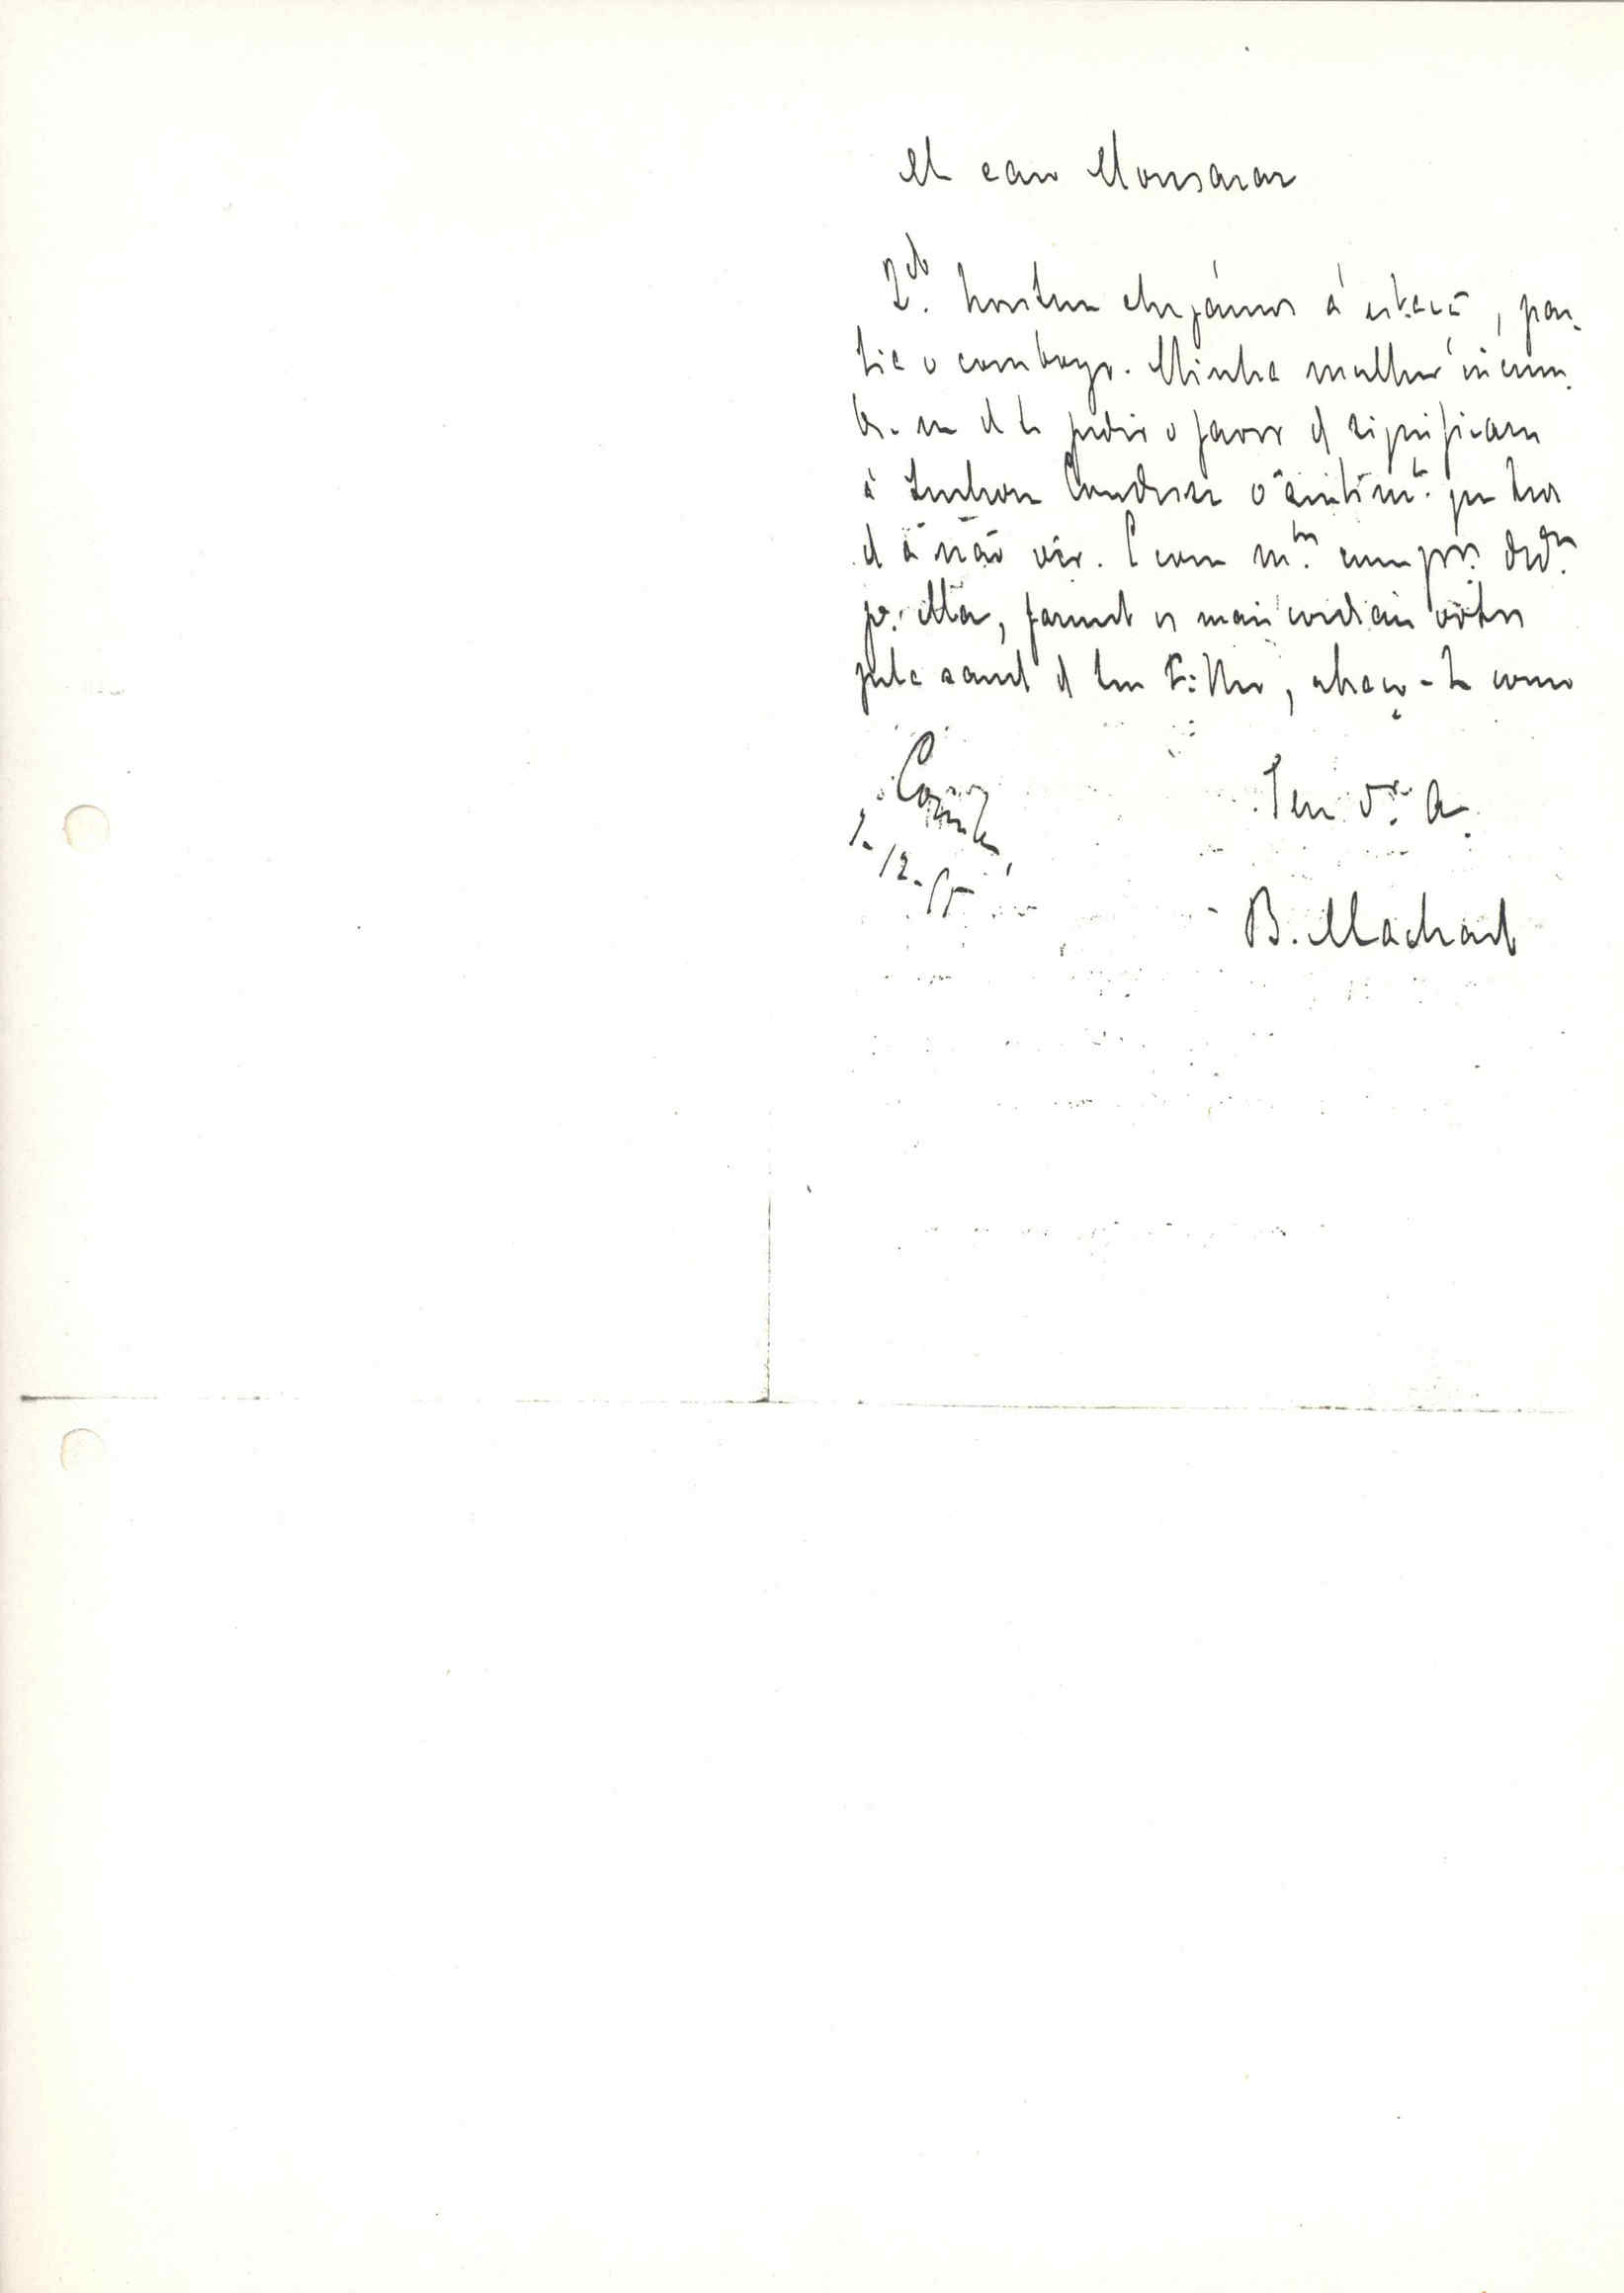 M caro Monsaraz
Qdo. hontem chegámos á estação, par-
tia o comboyo. Minha mulher incum-
be-me de te pedir o favor de significares
á Senhora Condessa o sentimto. que teve
de a não ver. E com mtos. cumptos.
pa. Ella, fazendo os mais cordiais votos
pela saude de teu Filho, abraço-te como
Coimbra,
12-95
Teu A.
B. Machado